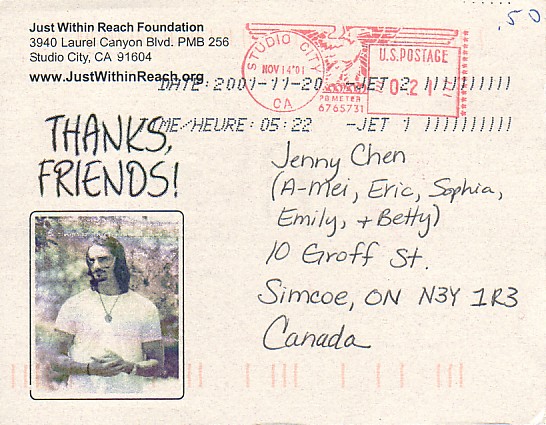 Just Within Reach Foundation
3940 Laurel Canyon Blvd. PMB 256
Studio City, CA 91604
www.JustWithinReach.org
.50
STUDIO CITY
NOV 14 '01
CA
U.S. POSTAGE
0.21
PB METER
6765731
DATE: 2001-11-20 -JET 2 ||||||||||
TIME/HEURE: 05:22 -JET 1 ||||||||||
THANKS,
FRIENDS!
Jenny Chen
(A-Mei, Eric, Sophia,
Emily, + Betty)
10 Groff St.
Simcoe, ON N3Y 1R3
Canada